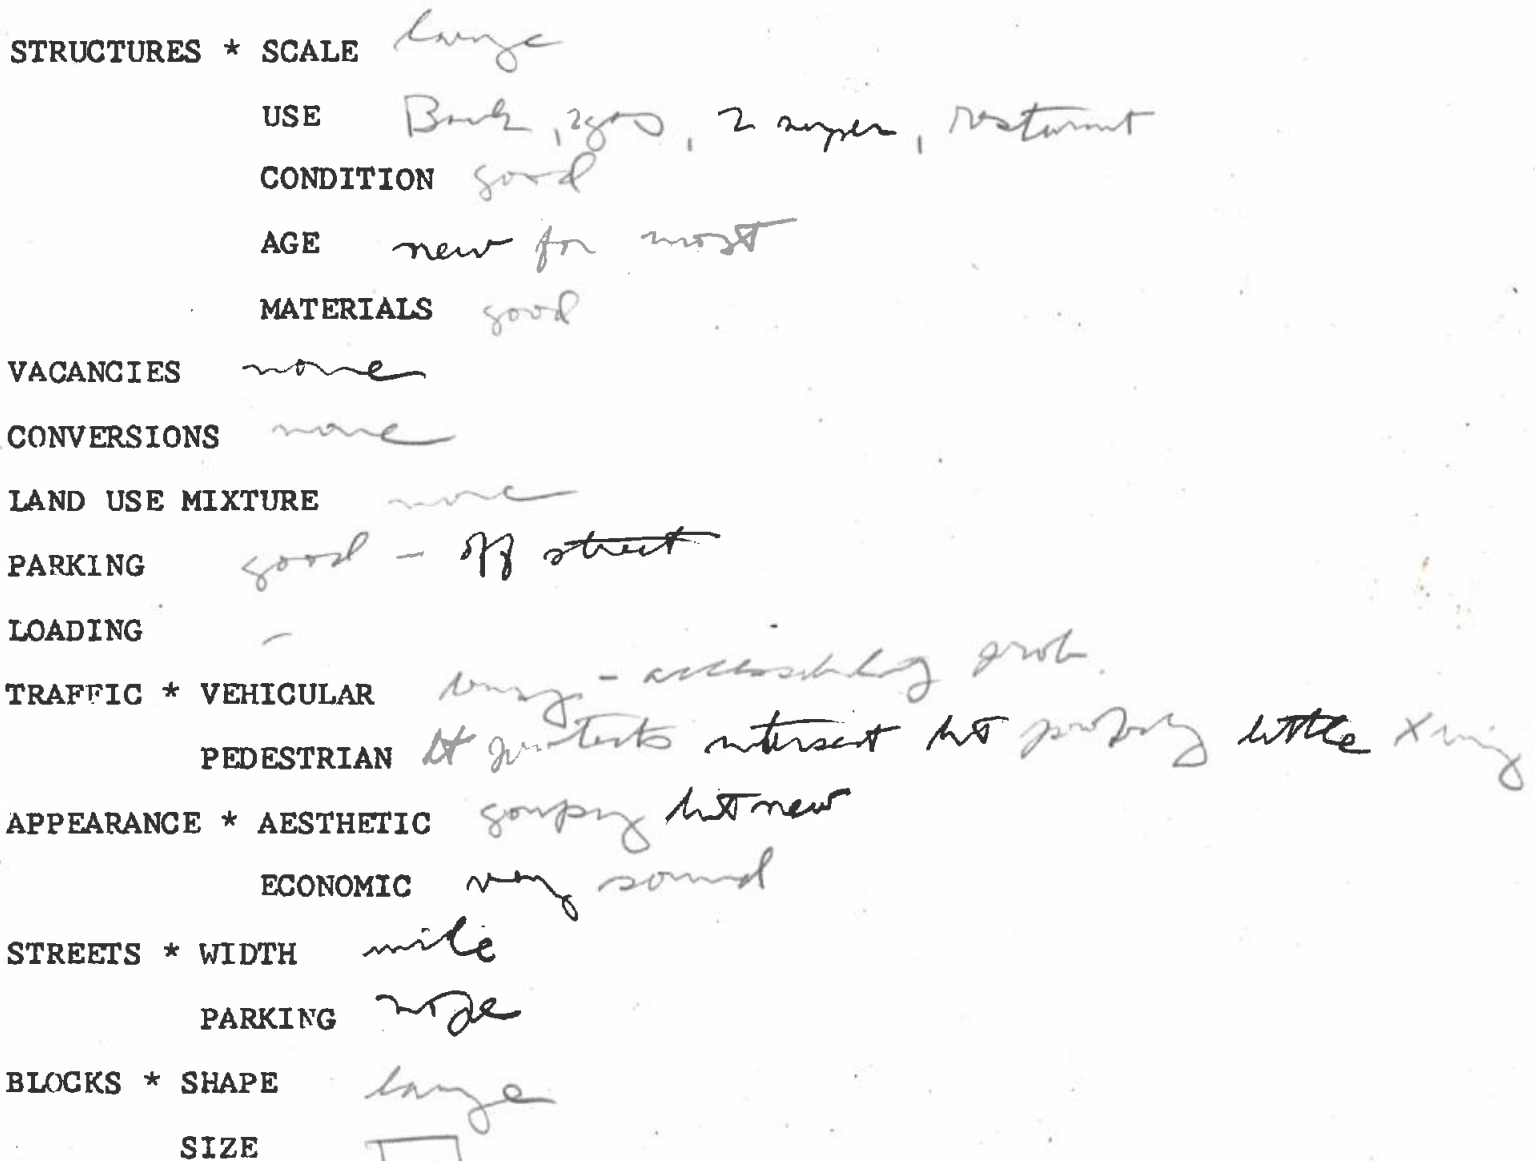 STRUCTURES * SCALE large
USE Bank, 2 gas, 2 super, resturant
CONDITION good
AGE new for most
MATERIALS good
VACANCIES none
CONVERSIONS none
LAND USE MIXTURE none
PARKING good - off street
LOADING -
TRAFFIC * VEHICULAR busy - accessibility prob.
PEDESTRIAN lt intersect but probably little Xing
APPEARANCE * AESTHETIC but new
ECONOMIC very sound
STREETS * WIDTH
PARKING
BLOCKS * SHAPE large
SIZE